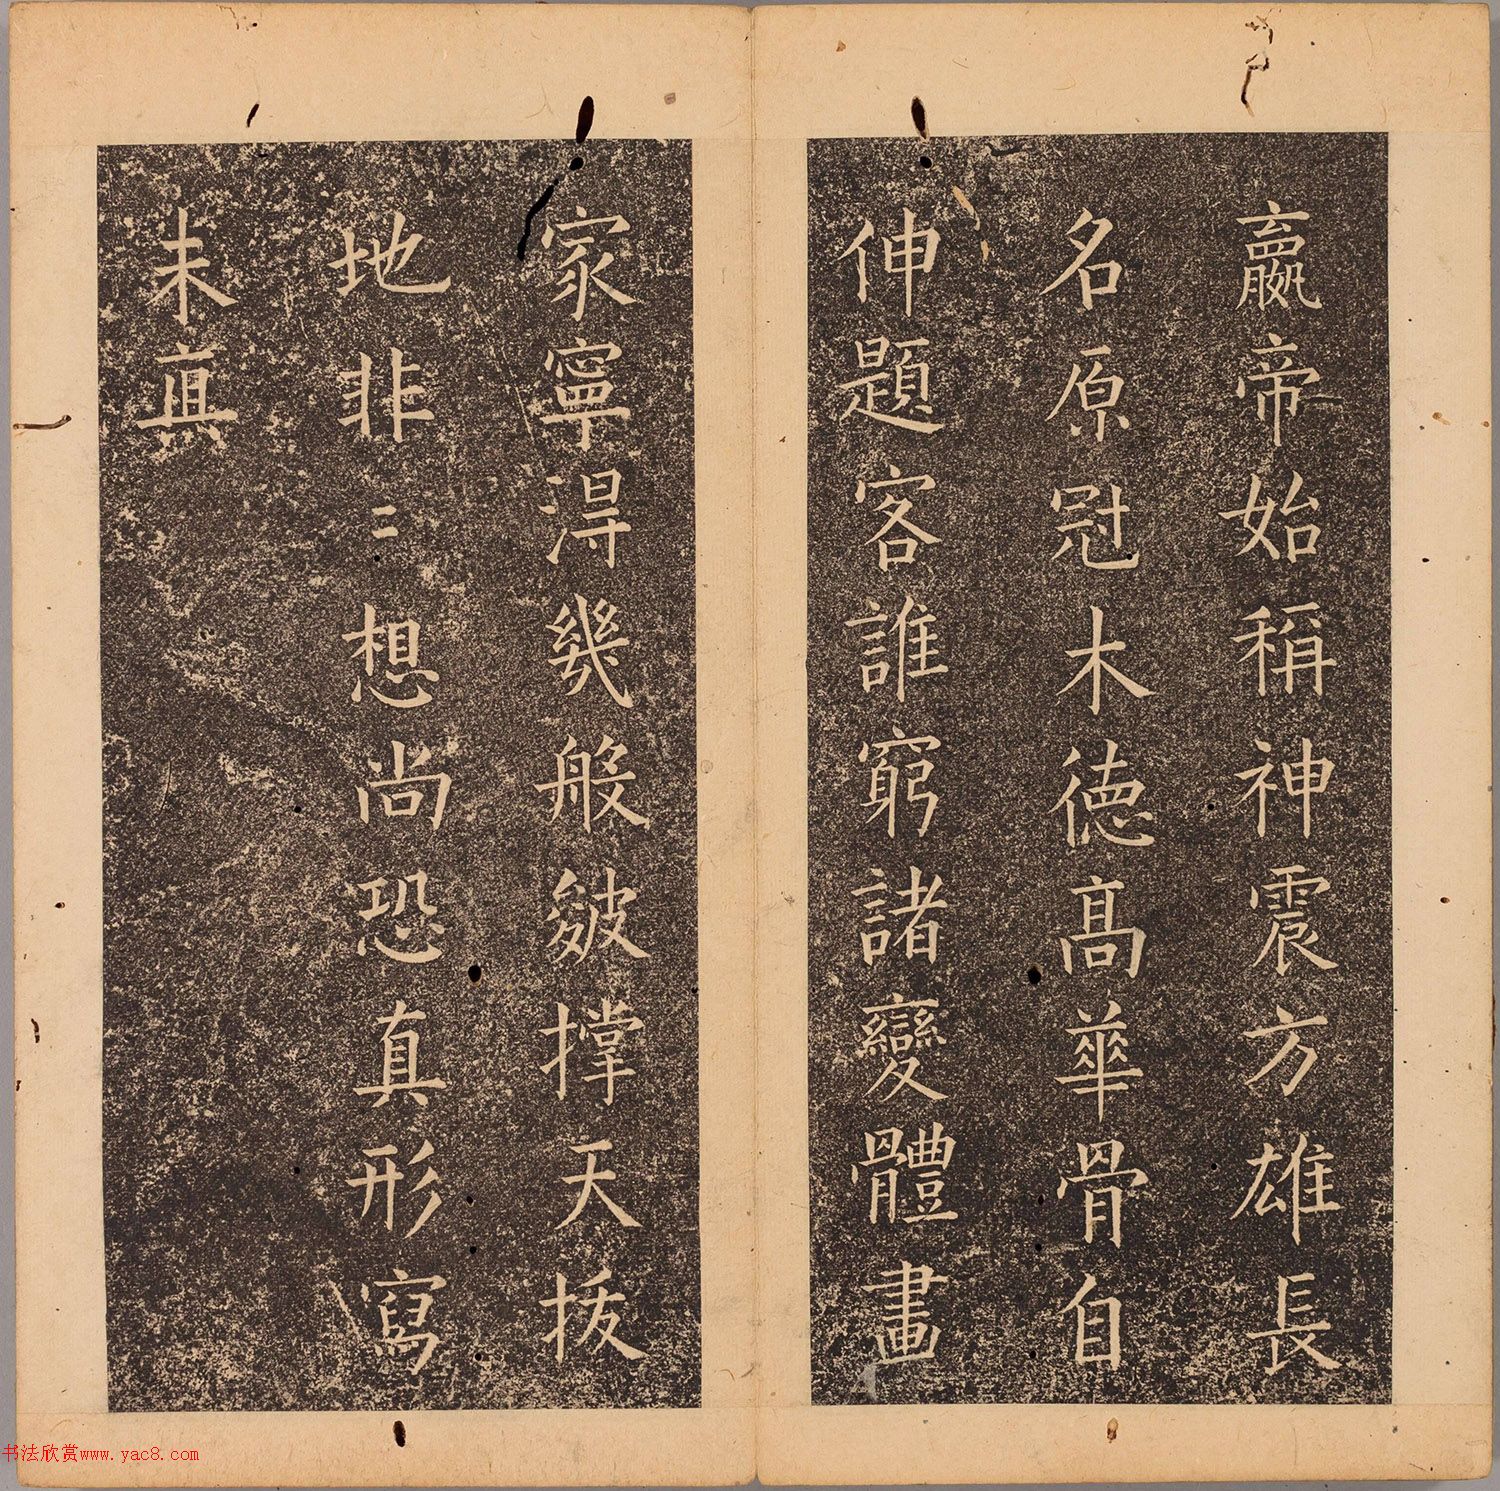 嬴帝始稱神震方雄長
名原冠木德高華骨自
伸題客誰窮諸變體畫
家寧得幾般皴撐天拔
地非〻想尚恐真形寫
未真
书法欣赏www.yac8.com